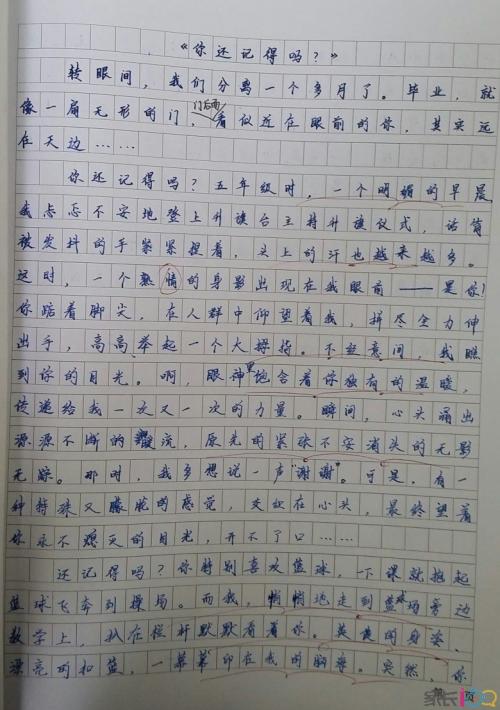 《你还记得吗？》
转眼间，我们分离一个多月了。毕业，就
像一扇无形的门，门后面看似近在眼前的你，其实远
在天边……
你还记得吗？五年级时，一个明媚的早晨
我忐忑不安地登上升旗台主持升旗仪式，话筒
被发抖的手紧紧握着，头上的汗也越来越多。
这时，一个熟情的身影出现在我眼前——是你！
你踮着脚尖，在人群中仰望着我，拼尽全力伸
出手，高高举起一个大拇指。不经意间，我瞧
到你的目光。啊，眼神里饱含着你独有的温暖，
传递给我一次又一次的力量。瞬间，心头涌出
源源不断的暖流，原先的紧张不安消失的无影
无踪。那时，我多想说一声“谢谢”。可是，有一
种特殊又朦胧的感觉，交织在心头，最终望着
你永不熄灭的目光，开不了口……
还记得吗？你特别喜欢篮球，一下课就抱起
篮球飞奔到操场。而我，悄悄地走到篮球场旁边
数学上，趴在栏杆默默看着你。英勇的身姿、
漂亮的扣篮，一幕幕印在我的脑海。突然，你
页
家长100